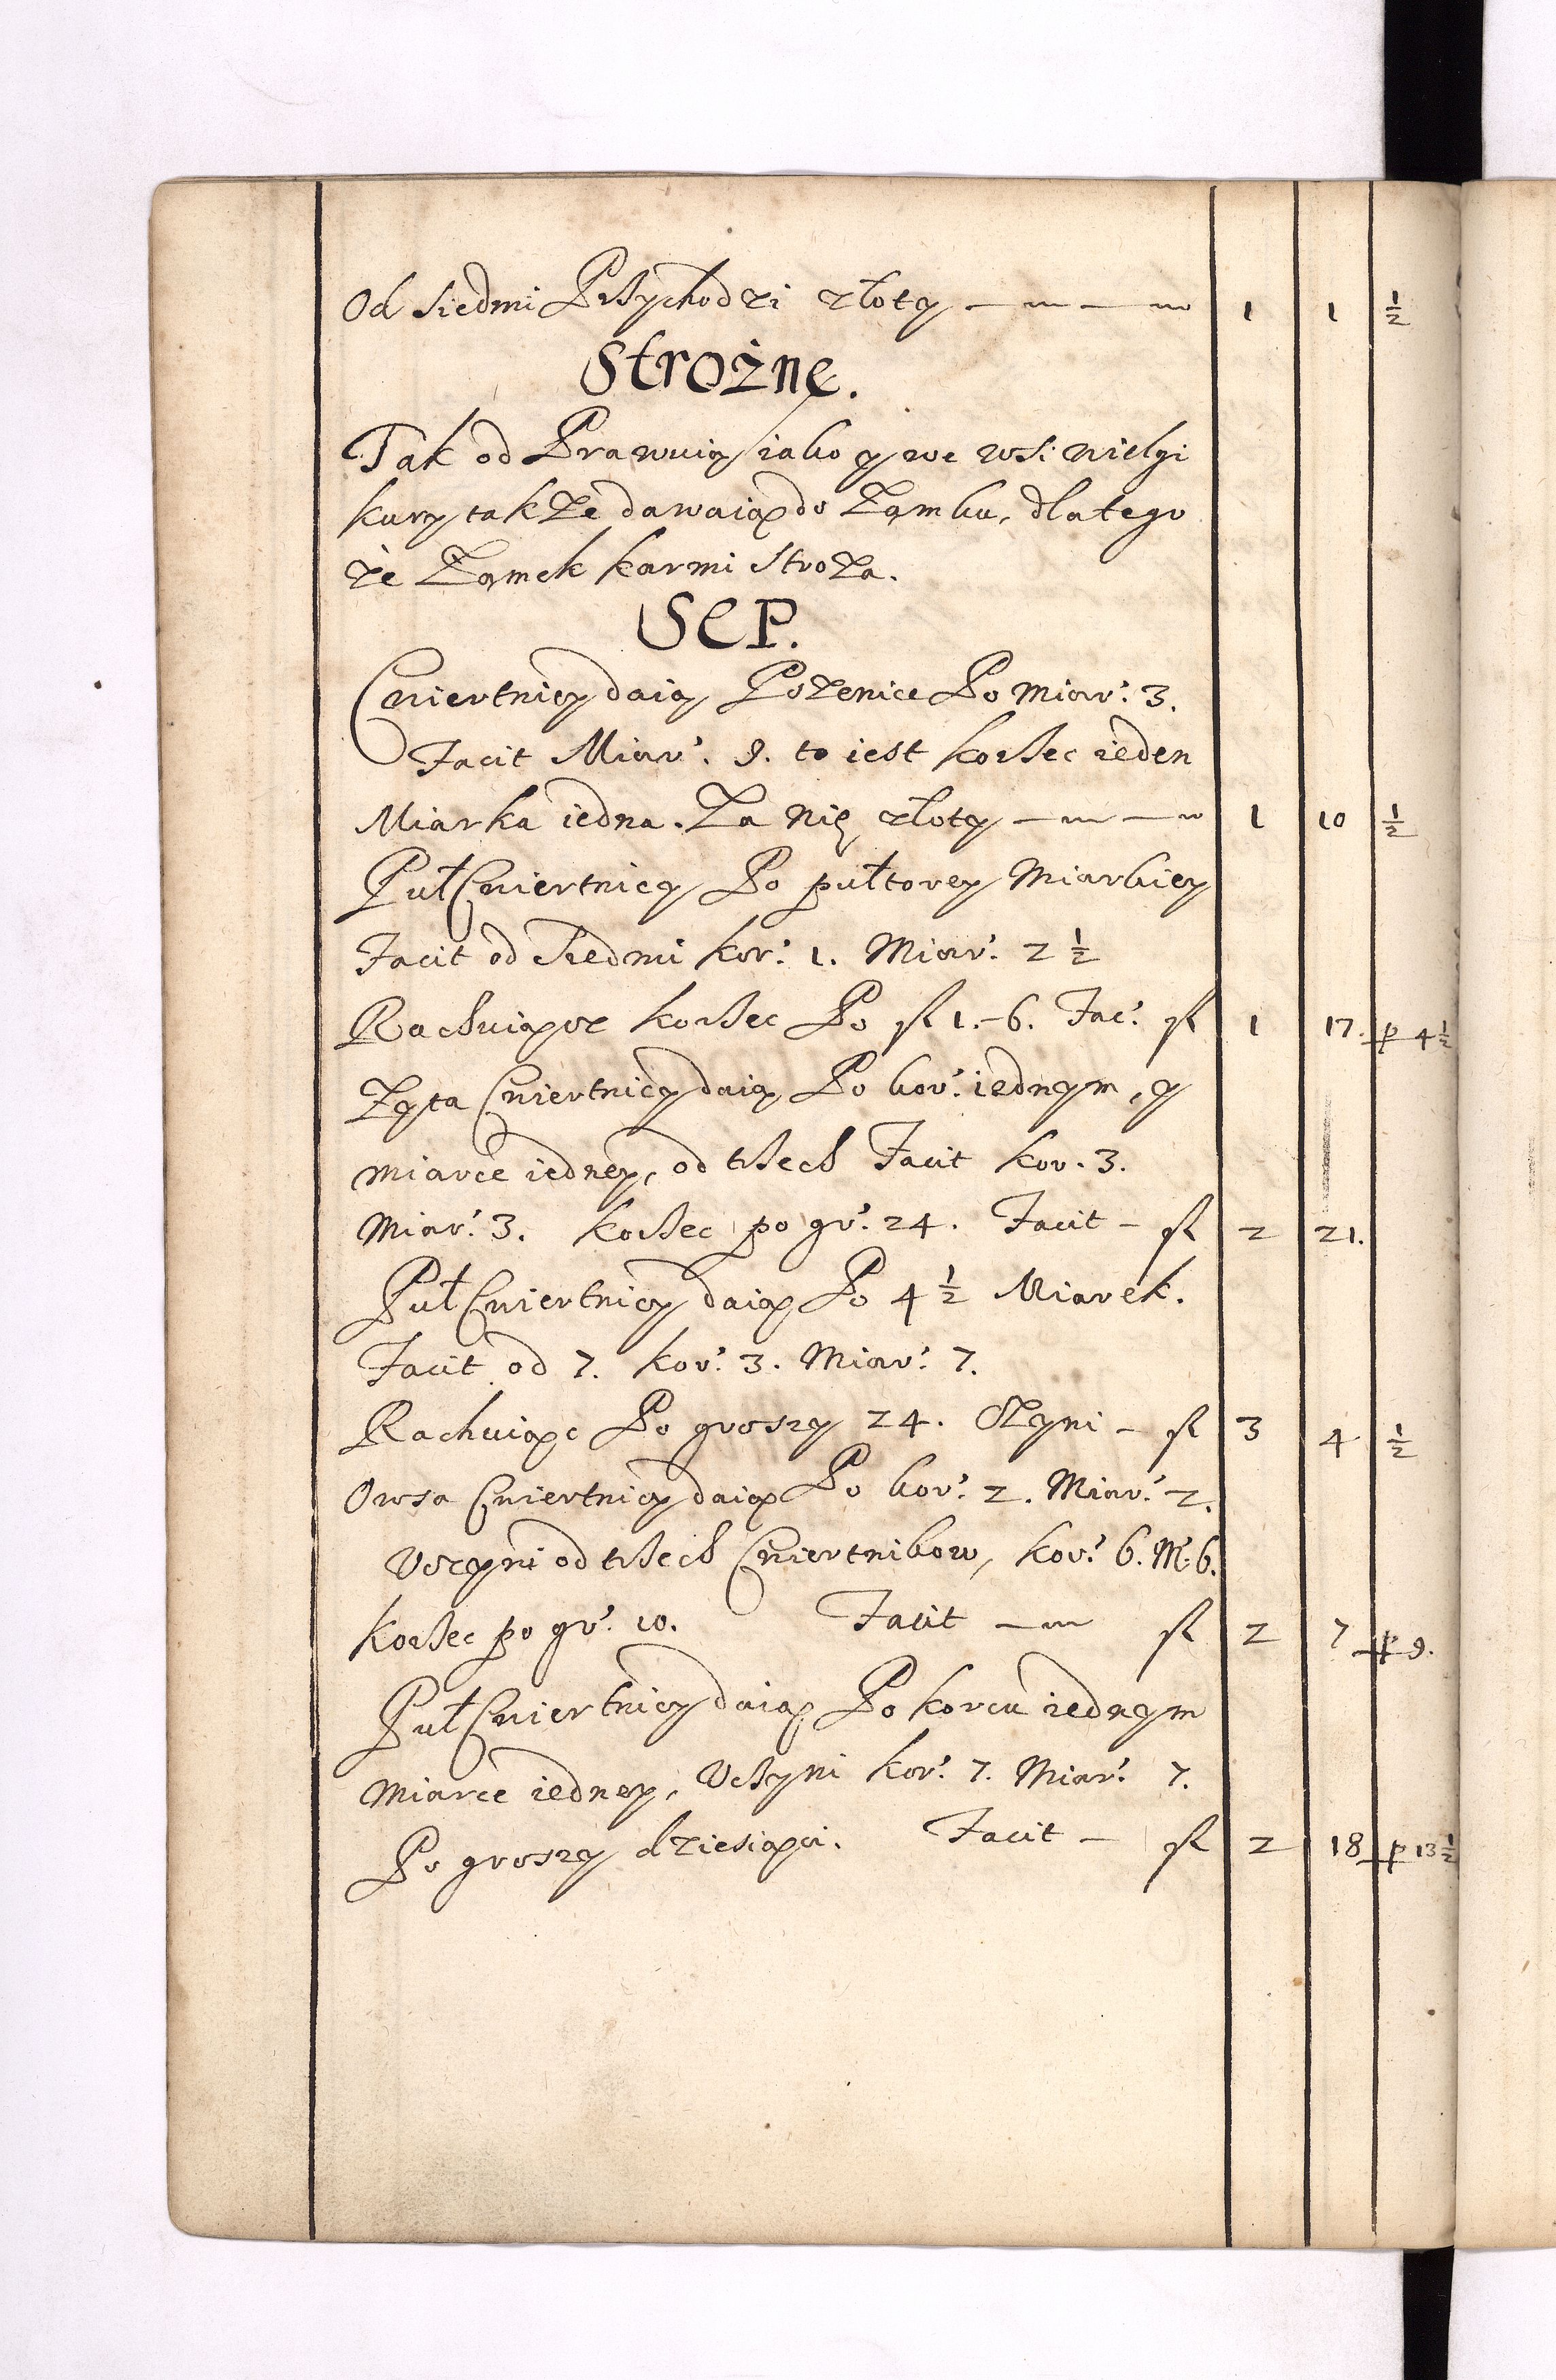 Od siedmi Przychodzi złoty — — 1 1 ½
Strożne.
Tak od Prawuią iako y we wsi
kury takze dawaią do Zamku, dlatego
że Zamek karmi stroża.
SEP.
Cwiertnicy daią Pszenice Po Miar: 3.
Facit Miar: 9. to iest korzec ieden
Miarka iedna. Za nię złoty — — 1 10 ½
Puł Cwiertnicy Po pułtorey Miarkiey
Facit od Siedmi kor: 1. Miar: 2 ½
Rachuiącz korzec Po fl 1.–6. Fac: fl 1 17. p 4½
Zyta Cwiertnicy daią Po kor: iednym, y
miarce iedney, od trzech Facit kor. 3.
Miar: 3. korzec po gr: 24. Facit – fl 2 21.
Puł Cwiertnicy daią Po 4 ½ Miarek.
Facit od 7. kor: 3. Miar: 7.
Rachuiąc Po groszy 24. Czyni – fl 3 4 ½
Owsa Cwiertnicy daią Po kor: 2. Miar: 2.
Vczyni od trzech Cwiertnikow, kor: 6. M: 6.
korzec po gr: 10. Facit — fl 2 7 p 9.
Puł Cwiertnicy daią Po korcu iednym
Miarce iedney, Vczyni kor: 7. Miar: 7.
Po groszy dziesiąci. Facit – fl 2 18 p 13½